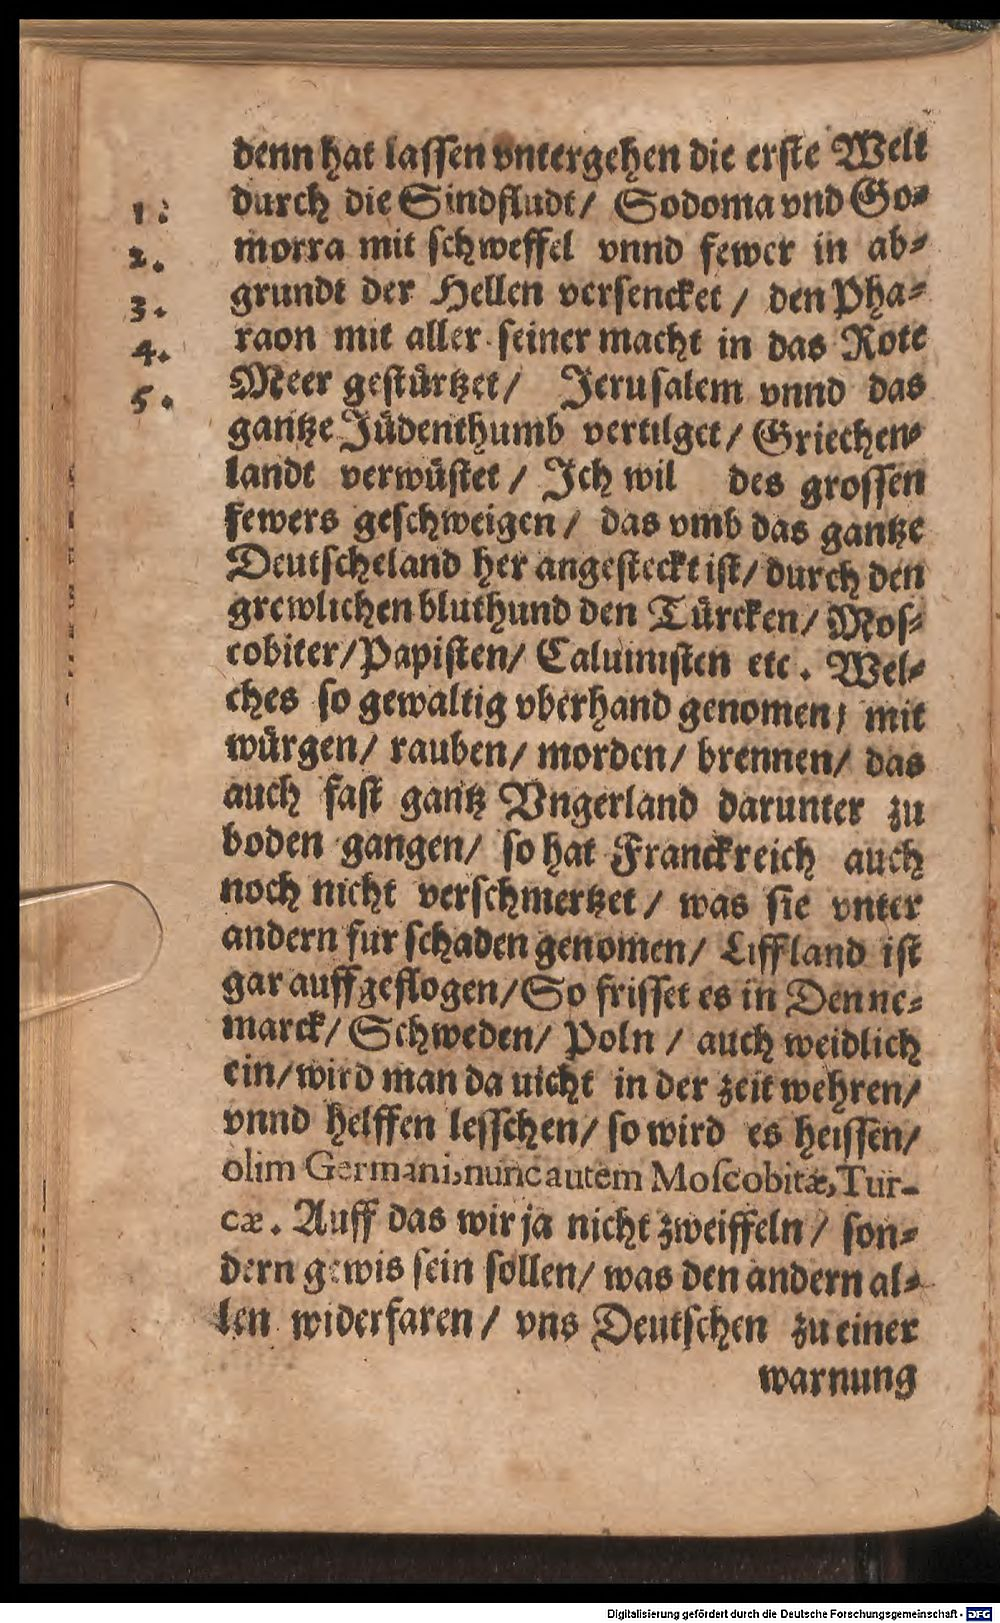 denn hat laſſen vntergehen die erſte Welt
1. durch die Sindfludt/ Sodoma vnd Go⸗
2. morra mit ſchweffel vnnd fewer in ab⸗
3. grundt der Hellen verſencket / den Pha⸗
4. raon mit aller ſeiner macht in das Rote
5. Meer geſtürtzet/ Jeruſalem vnnd das
gantze Jüdenthumb vertilget/ Griechen⸗
landt verwüſtet / Ich wil des groſſen
fewers geſchweigen / das vmb das gantze
Deutſcheland her angeſteckt iſt/ durch den
grewlichen bluthund den Türcken/ Moſ⸗
cobiter/Papiſten/ Caluiniſten etc. Wel⸗
ches ſo gewaltig vberhand genomen; mit
würgen/ rauben/ morden/ brennen/ das
auch faſt gantz Vngerland darunter zu
boden gangen/ ſo hat Franckreich auch
noch nicht verſchmertzet / was ſie vnter
andern fur ſchaden genomen/ Liffland iſt
gar auffgeflogen/So friſſet es in Denne⸗
marck/ Schweden/ Poln / auch weidlich
ein/wird man da nicht in der zeit wehren/
vnnd helffen leſſchen/ ſo wird es heiſſen/
olim Germani, nunc autem Moſcobitæ, Tur-
cæ. Auff das wir ja nicht zweiffeln / ſon⸗
dern gewis ſein ſollen/ was den andern al⸗
len widerfaren / vns Deutſchen zu einer
warnung
Digitalisierung gefördert durch die Deutsche Forschungsgemeinschaft - DFG